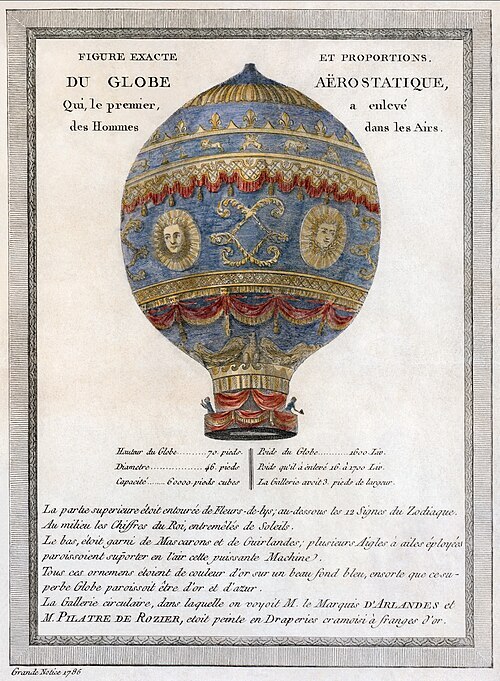 FIGURE EXACTE ET PROPORTIONS,
DU GLOBE AËROSTATIQUE,
Qui, le premier, a enlevé
des Hommes dans les Airs.
Hauteur du Globe..........70. pieds.
Diametre...............46. pieds
Capacité.......60000. pieds cubes
Poids du Globe..........1600. Liv.
Poids qu'il à énlevé 16. à 1700. Liv.
La Gallerie avoit 3. pieds de largeur.
La partie superieure étoit entourée de Fleurs-de-lys; au-dessous les 12 Signes du Zodiaque.
Au milieu les Chiffres du Roi, entremêlés de Soleils.
Le bas, étoit garni de Mascarons et de Guirlandes; plusieurs Aigles à ailes éployées
paroissoient supórter en l'air cette puissante Machine).
Tous ces ornemens étoient de couleur d'or sur un beau fond bleu, ensorte que ce su-
perbe Globe paroissoit être d'or et d'azur.
La Gallerie circulaire, dans laquelle on voyoit M. le Marquis D'ARLANDES et
M. PILATRE DE ROZIER, étoit peinte en Draperies cramoisi à franges d'or.
Grande Notice 1786